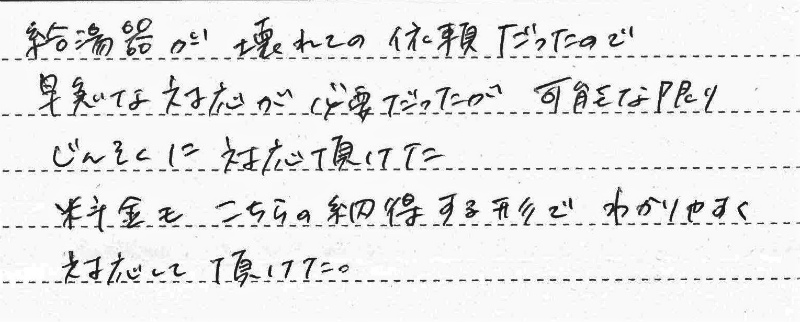 給湯器が壊れての依頼だったので
早急な対応が必要だったが 可能な限り
じんそくに対応頂けた
料金もこちらの納得する形でわかりやすく
対応して頂けた。